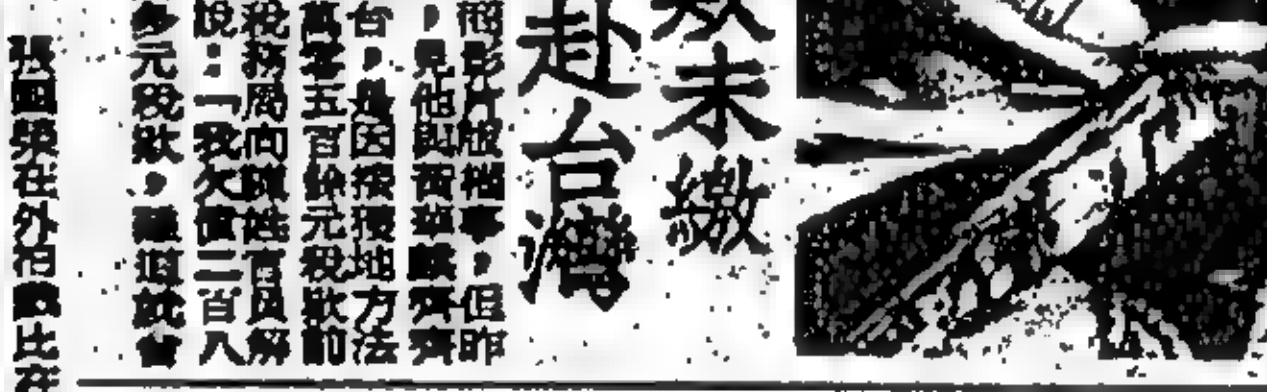 未繳
赴台灣
影片檔事,但昨
,見他與黃齊齊
台,是因接獲地方法
萬零五百餘元稅欵前
稅務局向姓官員解
說:「我欠債二百八
多元稅欵,難道就會
張國榮在外拍戲比在